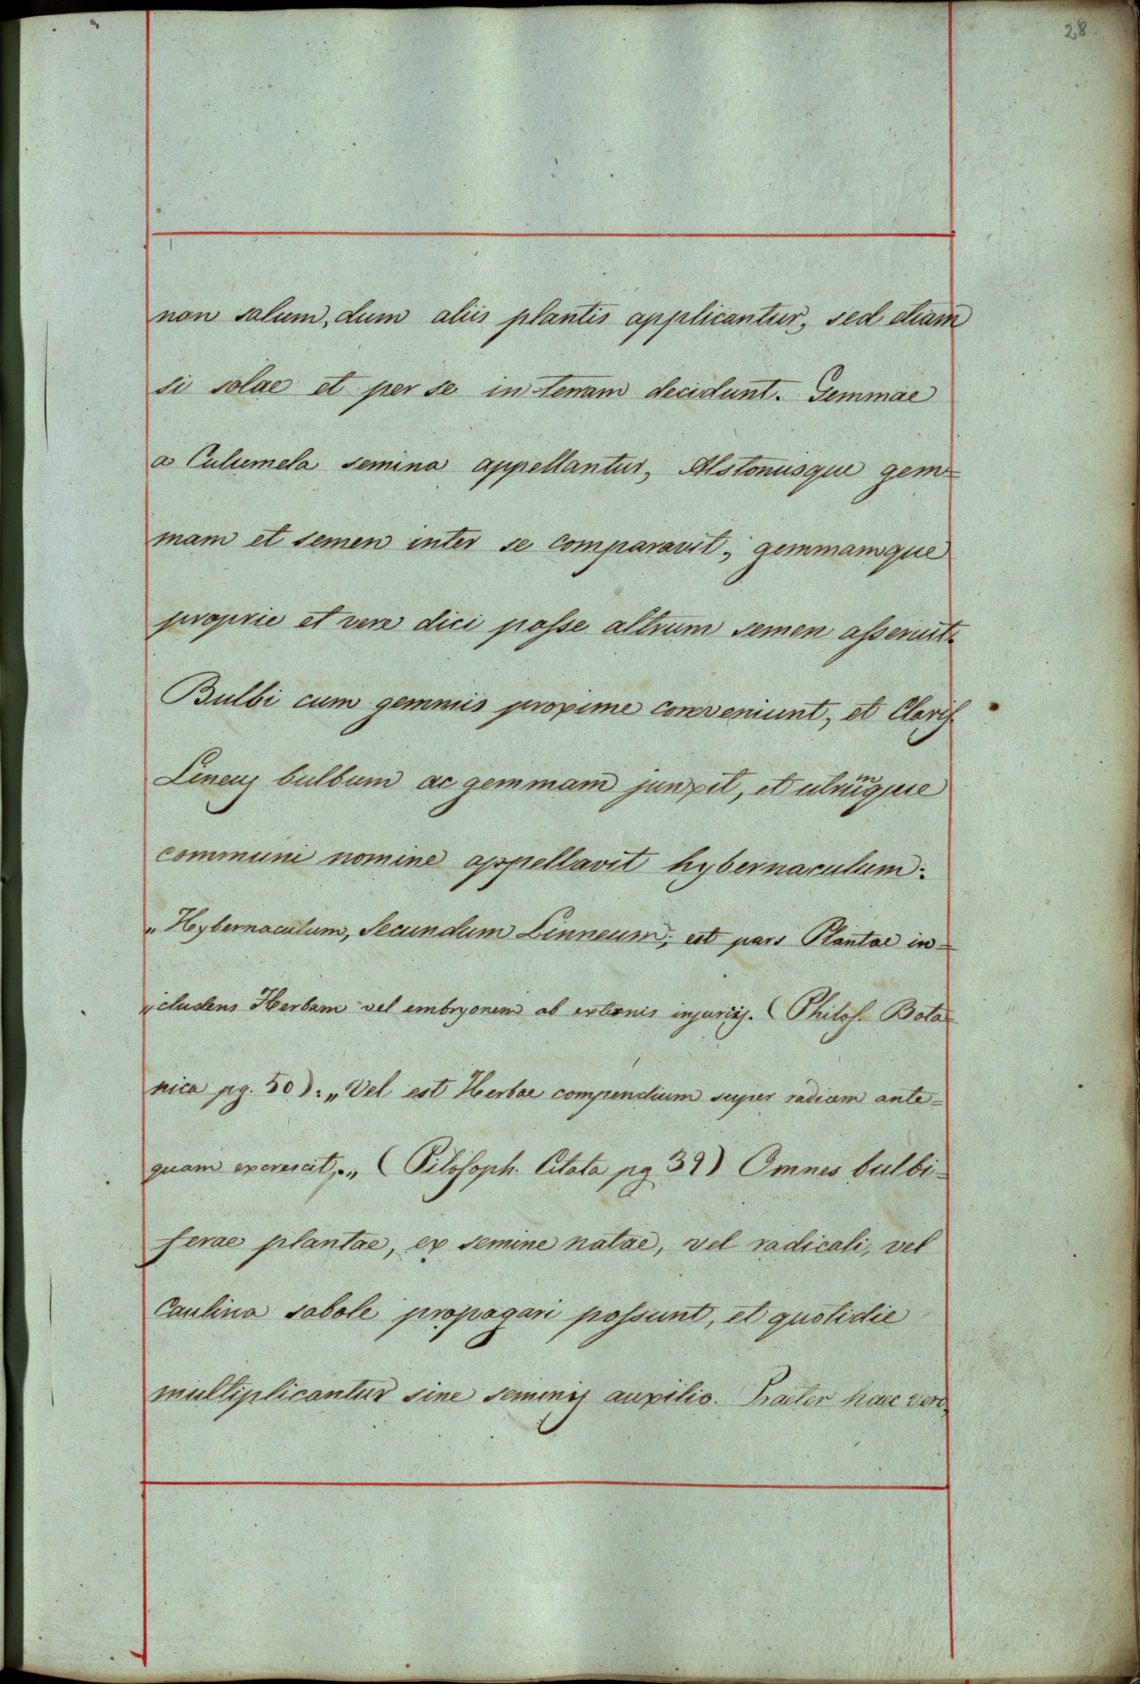 28.
non solum, dum aliis plantis applicantur, sed etiam
si solae et per se in terram decidunt. Gemmae
a Culumela semina appellantur, Alstonusque gem=
mam et semen inter se comparavit, gemmamque
proprie et vere dici posse altrum semen asseruit.
Bulbi cum gemmis proxime conveniunt, et Claris
Lineus bulbum ac gemmam junxit, et utrumque
communi nomine appellavit hybernaculum:
„Hybernaculum, Secundum Linneum, est pars Plantae in=
„cludens Herbam vel embryonem ab externis injuriis. (Philos. Bota=
nica pg. 50): „Vel est Herbae compendium super radicem ante=
quam excrescit„.„ (Pilosoph. Citata pg 39) Omnes bulbi=
ferae plantae, ex semine natae, vel radicali, vel
Caulina sobole propagari possunt, et quotidie
multiplicantur sine seminis auxilio. Praeter haec vero